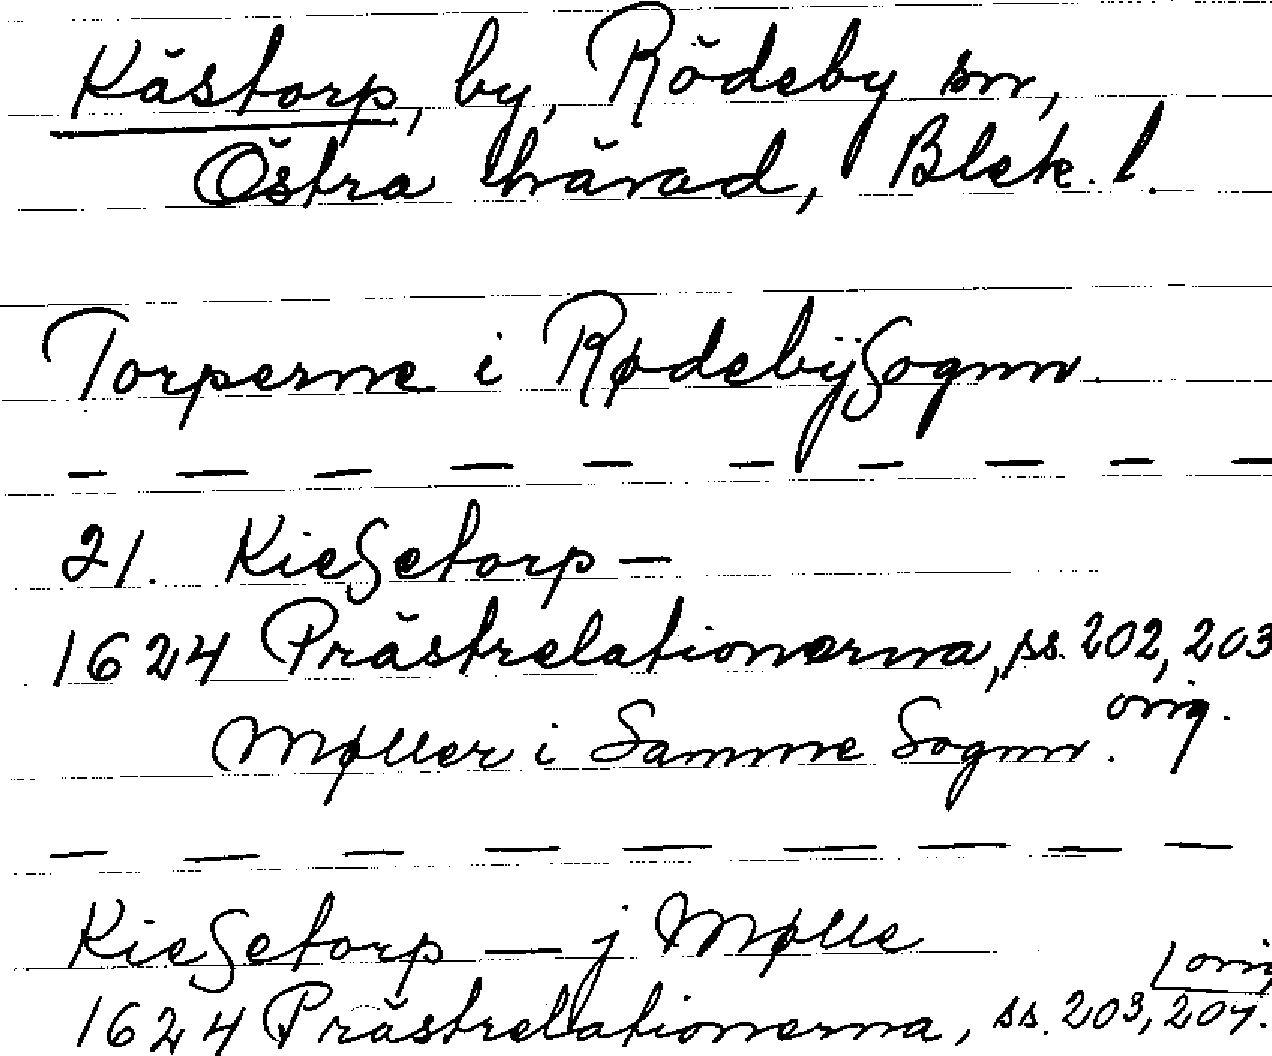 Kåstorp, by, Rödeby sn,
Östra härad, Blek. l.
Torperne i RødebÿSognn.
21. KieSetorp —
1624 Prästrelationerna, ss. 202, 203
orig.
Møller i Samme Sognn.
KieSetorp — j Mølle
1624 Prästrelationerna, ss. 203, 204.